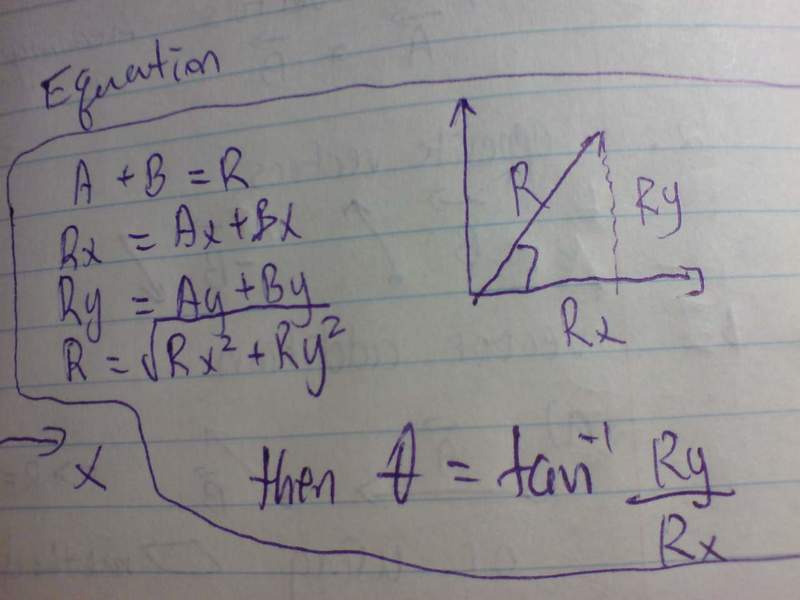 Equation
A + B = R
Rx = Ax + Bx
Ry = Ay + By
R = √Rx² + Ry²
R
Ry
Rx
x
then θ = tan⁻¹ Ry/Rx